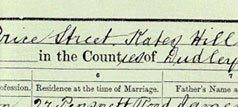 Price Street, Kates Hill
in the Counties of Dudley
6 7
ofession. Residence at the time of Marriage. Father's Name a
27 Pensnett Road James